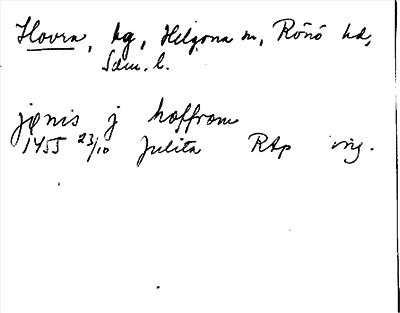 Hovra, hg, Helgona sn, Rönö hd,
Södm. l.
jønis j hoffrom
1455 23/10 Julita RAp orig.